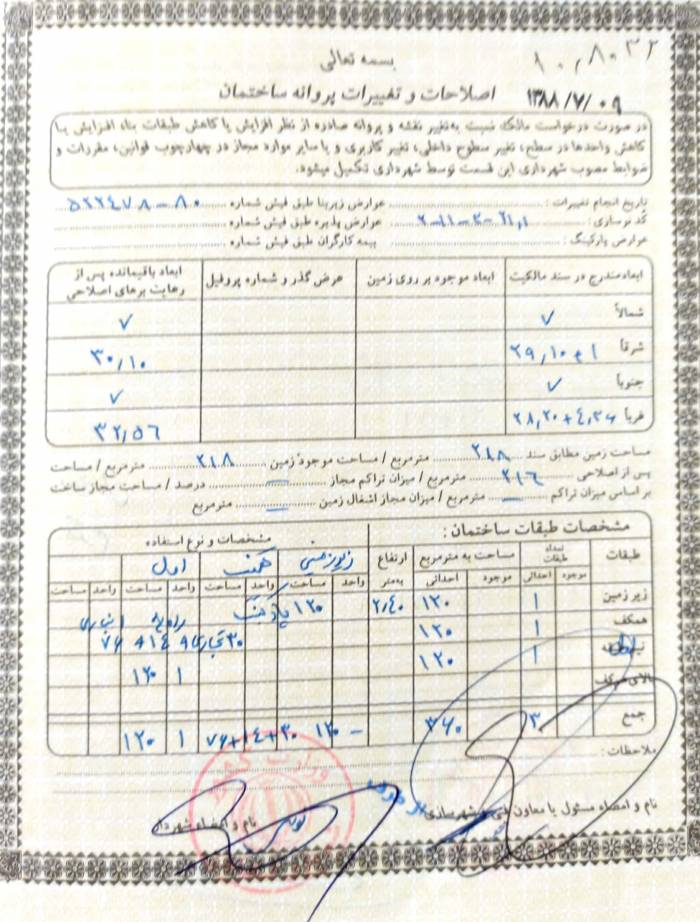 ۱۰٫۸۰۳۲
بسمه تعالی
اصلاحات و تغییرات پروانه ساختمان ۱۳۸۸/۷/۰۹
در صورت درخواست مالک نسبت به تغییر نقشه و پروانه صادره از نظر افزایش یا کاهش طبقات بنا، افزایش یا
کاهش واحدها در سطح، تغییر سطوح داخلی، تغییر کاربری و یا سایر موارد مجاز در چهارچوب قوانین، مقررات و
ضوابط مصوب شهرداری این قسمت توسط شهرداری تکمیل میشود.
تاریخ انجام تغییرات : عوارض زیربنا طبق فیش شماره ۸۰ - ۵۲۲۴۷۸
کد نوسازی : عوارض پذیره طبق فیش شماره
عوارض پارکینگ : بیمه کارگران طبق فیش شماره
ابعاد مندرج در سند مالکیت ابعاد موجود بر روی زمین عرض گذر و شماره پروفیل ابعاد باقیمانده پس از رعایت برهای اصلاحی
شمالاً ۷ ۷
شرقاً ۲۹٫۱۰+۱ ۳۰٫۱۰
جنوباً ۷ ۷
غرباً ۲۸٫۲۰+۴٫۳۶ ۳۲٫۵۶
مساحت زمین مطابق سند ۲۱۸ مترمربع / مساحت موجود زمین ۲۱۸ مترمربع / مساحت
پس از اصلاحی ۲۱۶ مترمربع / میزان تراکم مجاز — درصد / مساحت مجاز ساخت
بر اساس میزان تراکم — مترمربع / میزان مجاز اشغال زمین — مترمربع
مشخصات طبقات ساختمان : مشخصات و نوع استفاده
طبقات تعداد طبقات مساحت به مترمربع ارتفاع به متر زیرزمین همکف اول
موجود احداثی موجود احداثی واحد مساحت واحد مساحت واحد مساحت واحد مساحت
زیر زمین ۱ ۱۲۰ ۲٫۴۰ ۱۲۰ پارکینگ راه پله انباری
همکف ۱ ۱۲۰ ۳۰ تجاری ۱۴ ۷۶
۱ ۱۲۰
بالای همکف ۱ ۱۲۰
جمع ۳ ۳۶۰ - ۱۲۰ ۳۰ +۱۴+۷۶ ۱ ۱۲۰
ملاحظات :
نام و امضاء مسئول یا معاون فنی و شهرسازی
نام و امضاء شهردار